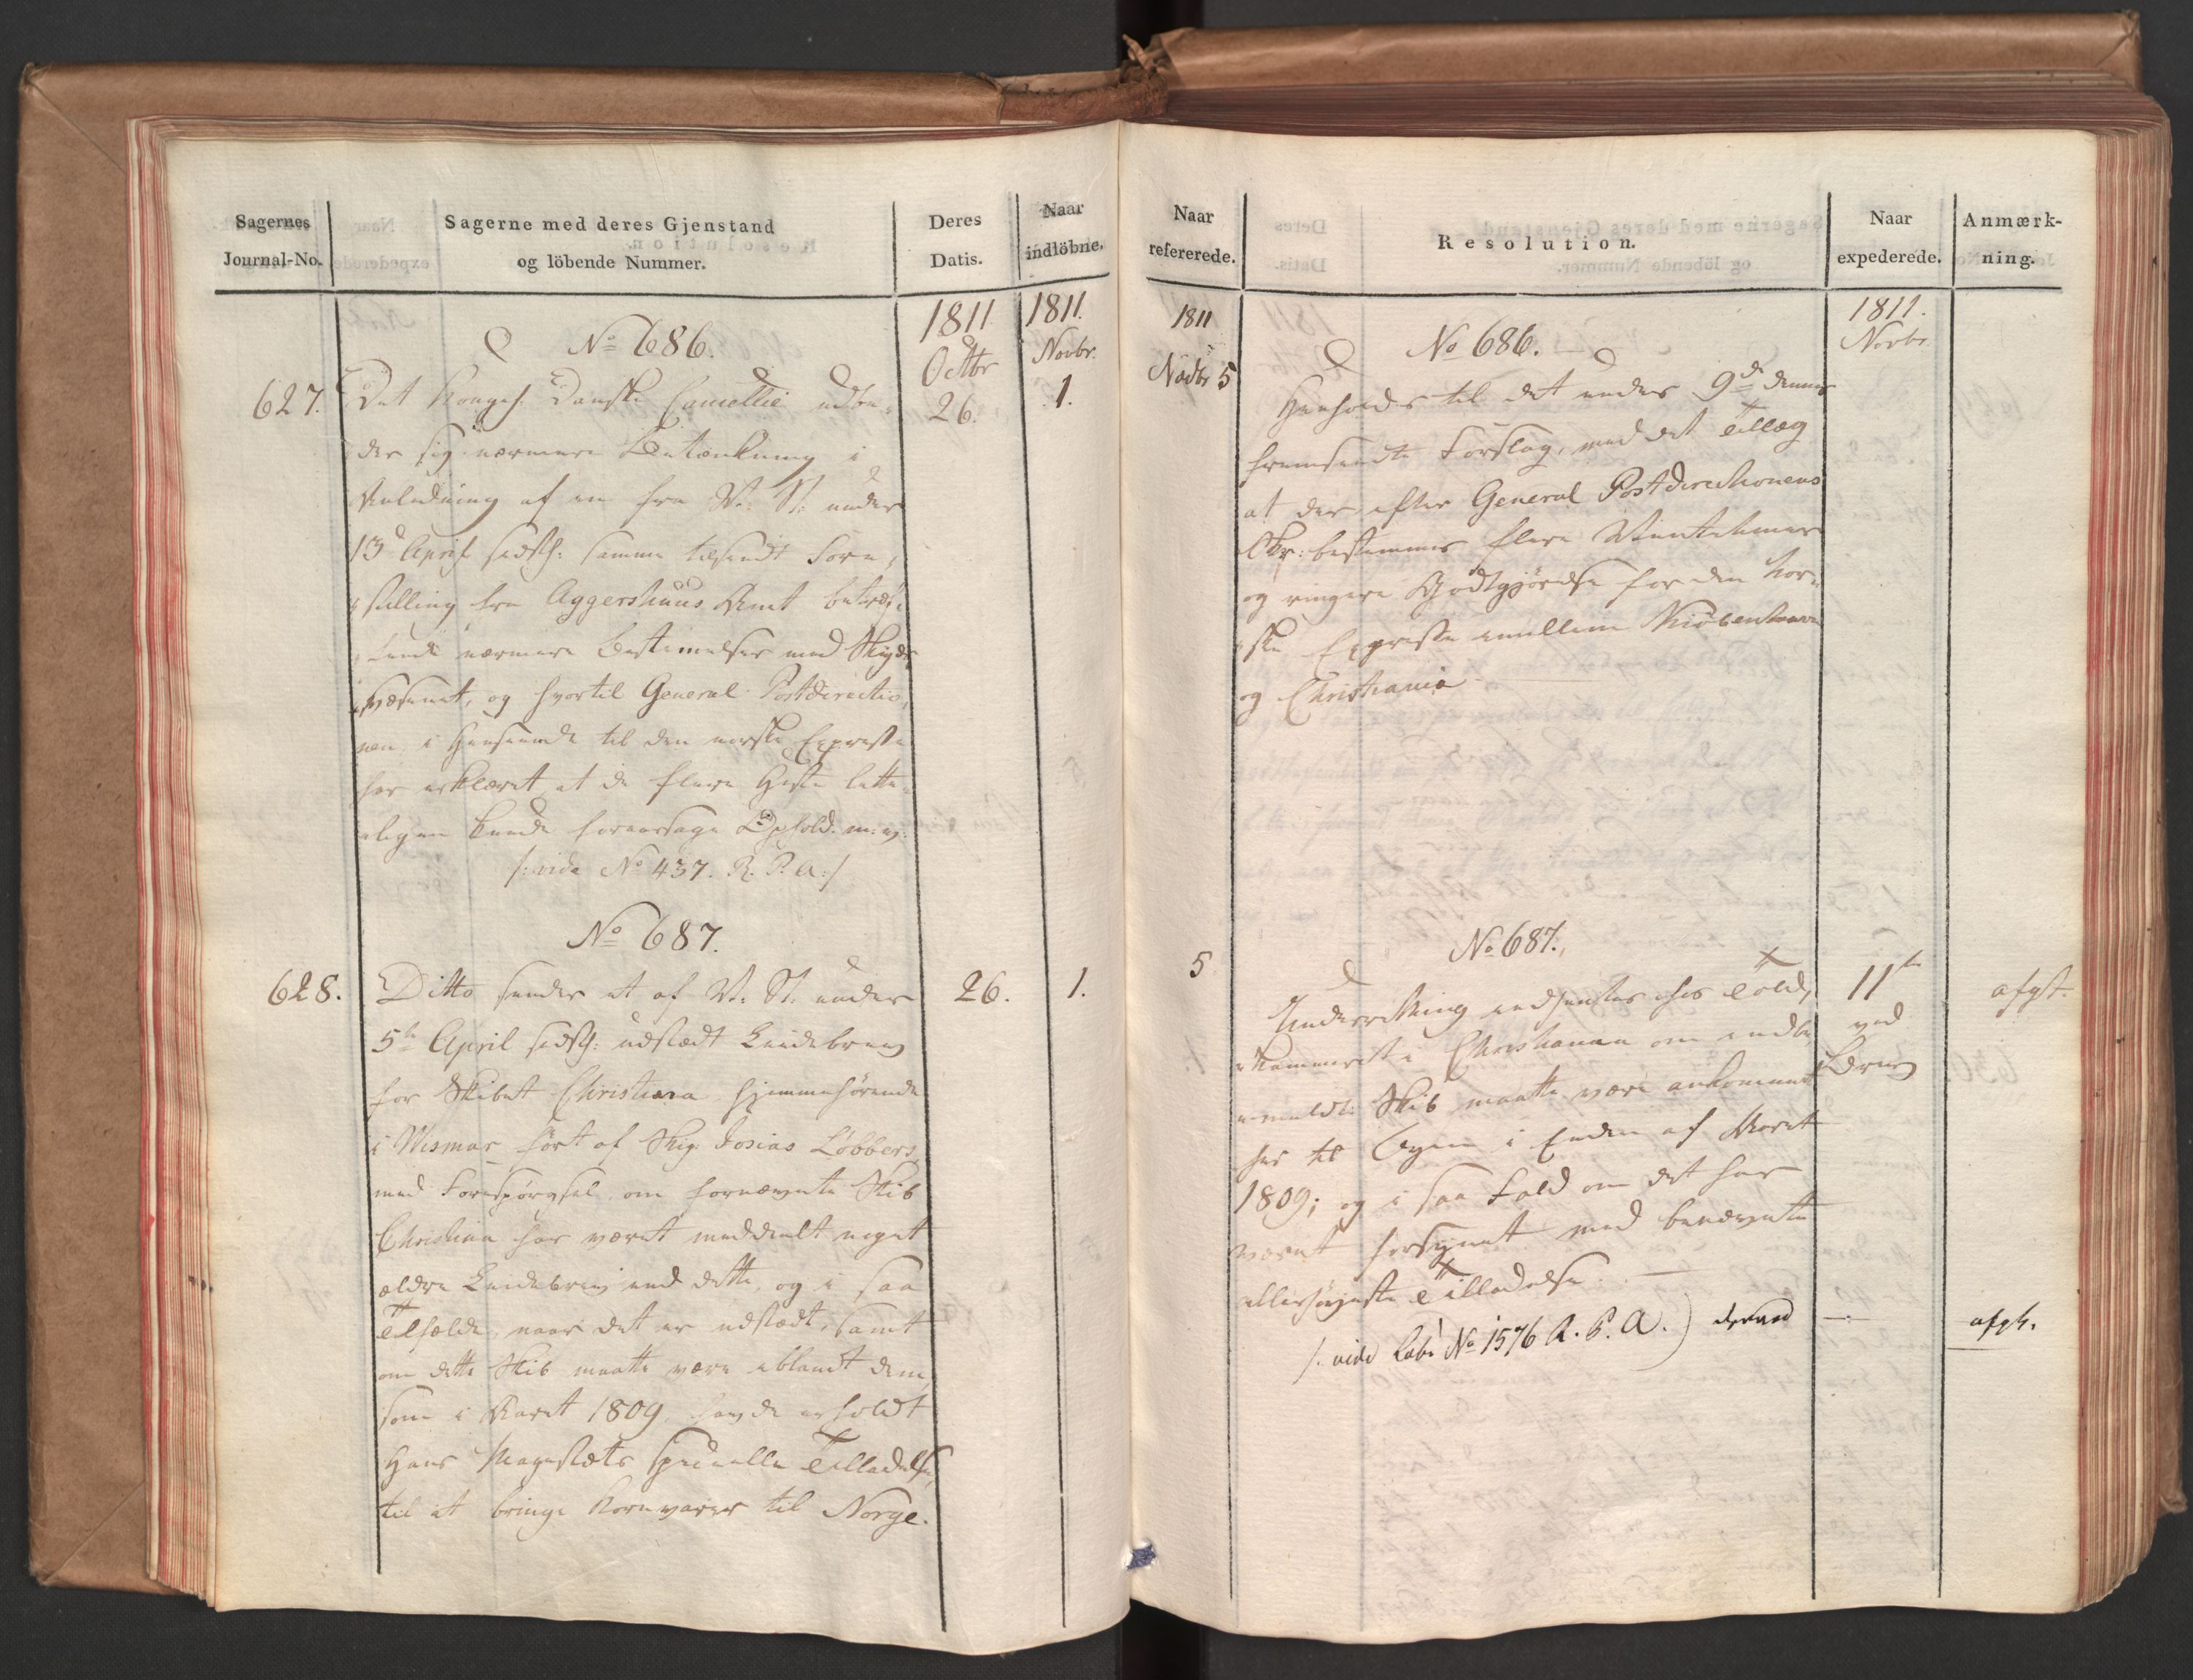 Sagernes
Journal-No.
Sagerne med deres Gjenstand
og löbende Nummer.
Deres
Datis.
Naar
indlöbne.
1811
Octbr
26.
1811.
Novbr.
1.
No 686.
627. Det Kongel. Danske Cancellie udbe-
der sig nærmere Betænkning i
Anledning af en fra V. St. under
13de April sidstl: samme tilsendt Fore-
stilling fra Aggershuus Amt betræf-
fende nærmere Bestemmelser med Skyds-
væsenet, og hvortil General Postdirectio-
nen i Henseende til den norske Expresse
har erklæret at de flere Heste lette-
ligen kunde foraarsage Ophold. m: v:
/: vide No 437. R. P. A :/
No 687.
628. Ditto sender et af V. St. under 26. 1.
5te April sidstl: udstædt Leidebrev
for Skibet Christiana hjemmehørende
i Wismar ført af Skip. Josias Løbbers,
med Forespørgsel om fornævnte Skib
Christiana har været meddeelt noget
ældre Leidebrev end dette, og i saa
Tilfælde, naar det er udstædt, samt
om dette Skib maatte være iblandt dem,
som i Aaret 1809 havde erholdt
Hans Majestæts specielle Tilladelse
til at bringe Kornvarer til Norge.
Naar
refererede.
Resolution.
Naar
expederede.
Anmærk-
ning.
1811
Novbr 5
1811.
Novbr.
No 686.
Henholdes til det under 9de dennes
fremsendte Forslag, med det Tillæg
at der efter General Postdirectionens
Skr: bestemmes flere
og ringere Godtgjørelse for den nor-
ske Expresse imellem Kiøbenhavn
og Christiania
No 687.
5 Underretning indhentes hos Told- 11te afgt.
kammeret i Christiania om indbe- ved
meldte Skib maatte være ankommet Brev
her til Byen i Enden af Aaret
1809; og i saa Fald om det har
været forsynet med benævnte
allerhøieste Tilladelse.
/: vide Lab: No 1576 R. P. A. ) derved — afgt.